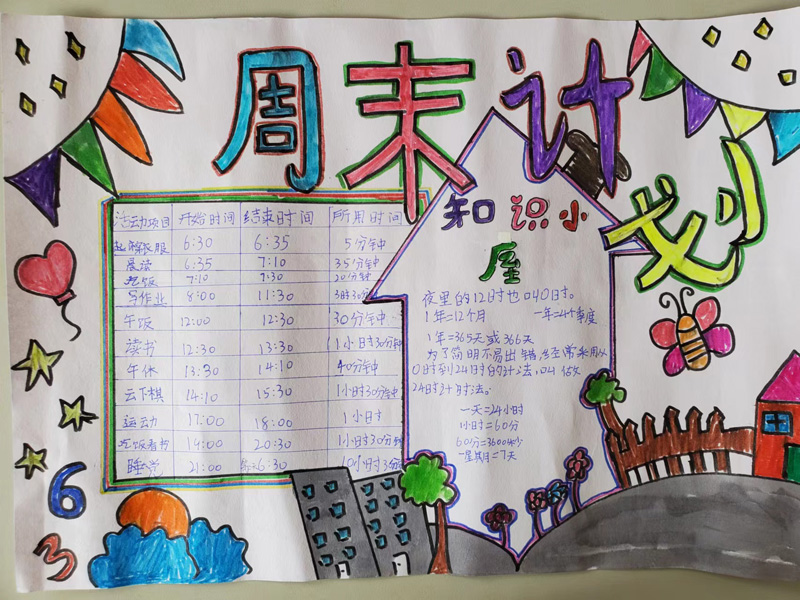 周末计划
活动项目 开始时间 结束时间 所用时间
起床穿衣服 6:30 6:35 5分钟
晨读 6:35 7:10 35分钟
吃饭 7:10 7:30 20分钟
写作业 8:00 11:30 3时30分
午饭 12:00 12:30 30分钟
读书 12:30 13:30 1小日30分钟
午休 13:30 14:10 40分钟
云下棋 14:10 15:30 1小时30分钟
运动 17:00 18:00 1小时
吃饭看书 19:00 20:30 1小时30分钟
睡觉 21:00 6:30 10小时3分
知识小
屋
夜里的12时也叫0时。
1年=12个月 一年=4个季度
1年=365天或366天
为了简明不易出错,经常采用从
0时到24时的计法,叫做
24时计时法。
一天=24小时
1小时=60分
60分=3600秒
一星期=7天
6
3